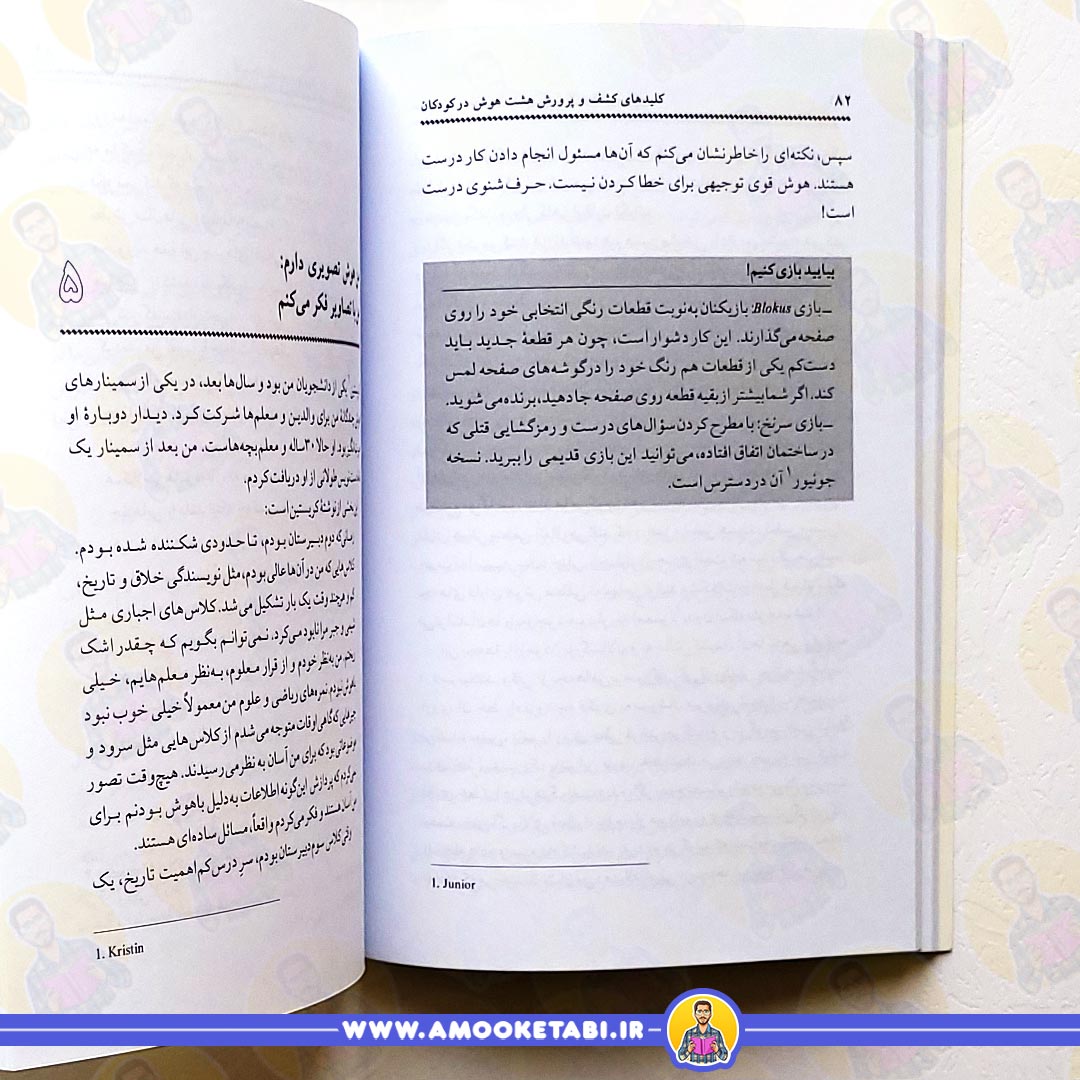 ۸۲ کلیدهای کشف و پرورش هشت هوش در کودکان
سپس، نکته‌ای را خاطرنشان می‌کنم که آن‌ها مسئول انجام دادن کار درست
هستند. هوش قوی توجیهی برای خطا کردن نیست. حرف‌شنوی درست
است!
بیایید بازی کنیم!
ـ بازی Blokus: بازیکنان به‌نوبت قطعات رنگی انتخابی خود را روی
صفحه می‌گذارند. این کار دشوار است، چون هر قطعهٔ جدید باید
دست‌کم یکی از قطعات هم رنگ خود را در گوشه‌های صفحه لمس
کند. اگر شما بیشتر از بقیه قطعه روی صفحه جا دهید، برنده می‌شوید.
ـ بازی سرنخ: با مطرح کردن سؤال‌های درست و رمزگشایی قتلی که
در ساختمان اتفاق افتاده، می‌توانید این بازی قدیمی را ببرید. نسخه
جونیور۱ آن در دسترس است.
1. Junior
۵
هوش تصویری دارم:
با تصاویر فکر می‌کنم
یکی از دانشجویان من بود و سال‌ها بعد، در یکی از سمینارهای
من برای والدین و معلم‌ها شرکت کرد. دیدار دوبارهٔ او
بود. او حالا ۳۰ ساله و معلم بچه‌هاست. من بعد از سمینار یک
طولانی از او دریافت کردم.
بخشی از نوشتهٔ کریستین است:
زمانی که دوم دبیرستان بودم، تا حدودی شکننده شده بودم.
کلاس‌هایی که من در آن‌ها عالی بودم، مثل نویسندگی خلاق و تاریخ،
هرچند وقت یک بار تشکیل می‌شد. کلاس‌های اجباری مثل
شیمی و جبر مرا نابود می‌کرد. نمی‌توانم بگویم که چقدر اشک
ریختم. من به‌نظر خودم و از قرار معلوم، به‌نظر معلم‌هایم، خیلی
باهوش نبودم. نمره‌های ریاضی و علوم من معمولاً خیلی خوب نبود
چیزهایی که گاهی اوقات متوجه می‌شدم از کلاس‌هایی مثل سرود و
موضوعاتی بود که برای من آسان به نظر می‌رسیدند. هیچ‌وقت تصور
نمی‌کردم که پردازش این‌گونه اطلاعات به دلیل باهوش بودنم برای
من آسان هستند و فکر می‌کردم واقعاً، مسائل ساده‌ای هستند.
وقتی کلاس سوم دبیرستان بودم، سرِ درس کم‌اهمیت تاریخ، یک
1. Kristin
WWW.AMOOKETABI.IR